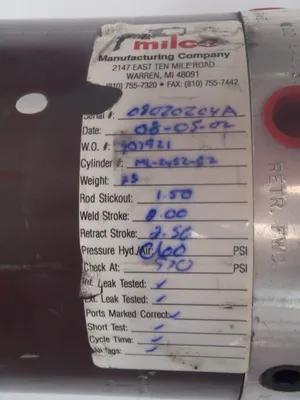 milco
Manufacturing Company
2147 EAST TEN MILE ROAD
WARREN, MI 48091
(810) 755-7320 • FAX: (810) 755-7442
Serial #: 08020204A
Date: 08-05-02
W.O. #: 407921
Cylinder #: ML-2452-52
Weight: 25
Rod Stickout: 1.50
Weld Stroke: 0.00
Retract Stroke: 2.50
Pressure Hyd./Air: PSI
Check At: 970 PSI
Int. Leak Tested: ✓
Ext. Leak Tested: ✓
Ports Marked Correct: ✓
Short Test: ✓
Cycle Time: ✓
Tags: ✓
RETR. FWD